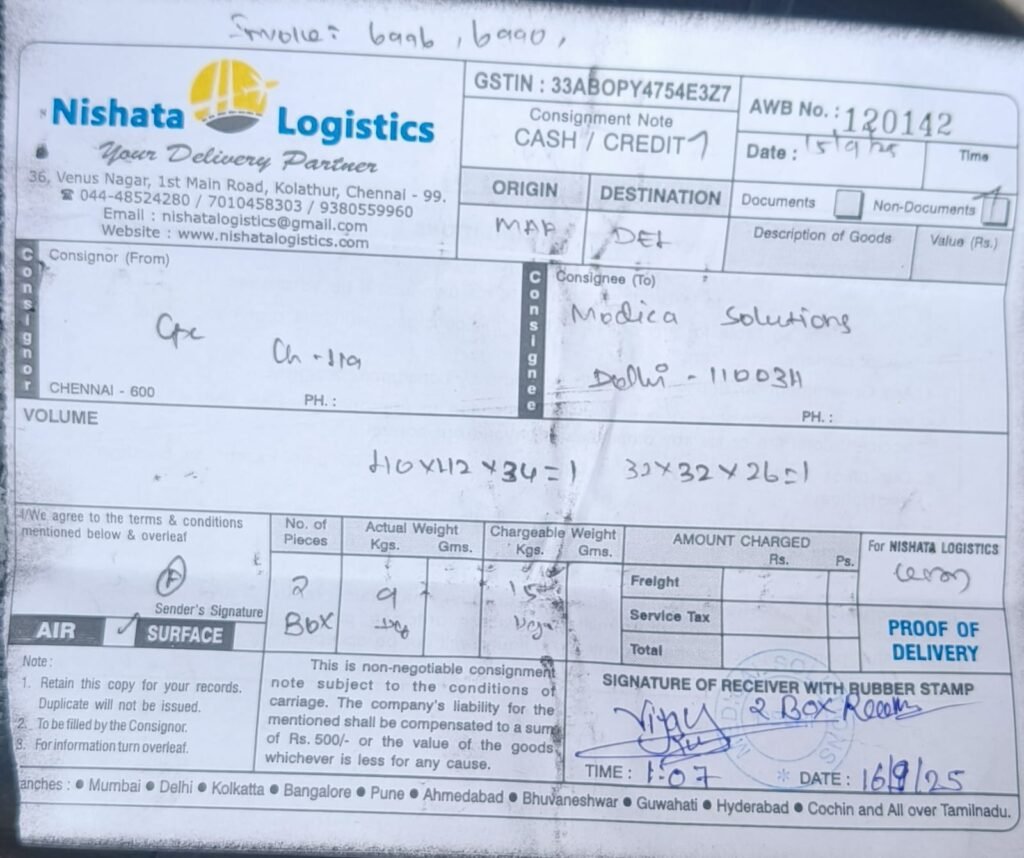 Invoice: 6996, 6990,
Nishata Logistics
Your Delivery Partner
36, Venus Nagar, 1st Main Road, Kolathur, Chennai - 99.
☎ 044-48524280 / 7010458303 / 9380559960
Email : nishatalogistics@gmail.com
Website : www.nishatalogistics.com
GSTIN : 33ABOPY4754E3Z7
Consignment Note
CASH / CREDIT
AWB No. : 120142
Date : 15/9/25 Time
ORIGIN DESTINATION
MAA DEL
Documents Non-Documents
Description of Goods Value (Rs.)
Consignor
Consignor (From)
CHENNAI - 600 PH. :
Consignee
Consignee (To)
Modica Solutions
Delhi - 110034
PH. :
VOLUME
40×42×34=1 32×32×26=1
I/We agree to the terms & conditions
mentioned below & overleaf
Sender's Signature
AIR SURFACE
No. of Pieces
2
BOX
Actual Weight
Kgs. Gms.
9
kg
Chargeable Weight
Kgs. Gms.
15
kg
AMOUNT CHARGED
Rs. Ps.
Freight
Service Tax
Total
For NISHATA LOGISTICS
PROOF OF
DELIVERY
Note :
1. Retain this copy for your records.
Duplicate will not be issued.
2. To be filled by the Consignor.
3. For information turn overleaf.
This is non-negotiable consignment
note subject to the conditions of
carriage. The company's liability for the
mentioned shall be compensated to a sum
of Rs. 500/- or the value of the goods
whichever is less for any cause.
SIGNATURE OF RECEIVER WITH RUBBER STAMP
Vijay 2 Box
TIME : 1:07 DATE : 16/9/25
anches : ● Mumbai ● Delhi ● Kolkatta ● Bangalore ● Pune ● Ahmedabad ● Bhuvaneshwar ● Guwahati ● Hyderabad ● Cochin and All over Tamilnadu.